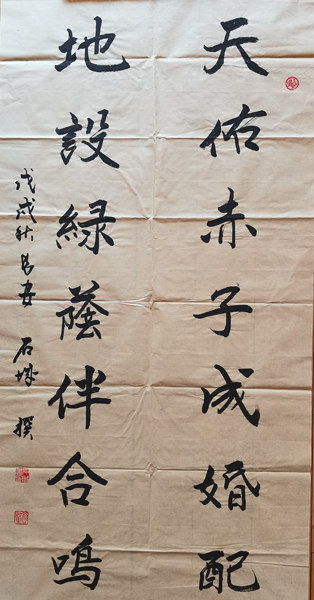 天佑赤子成婚配
地設緑蔭伴合鳴
戊戌秋長安 石城 撰